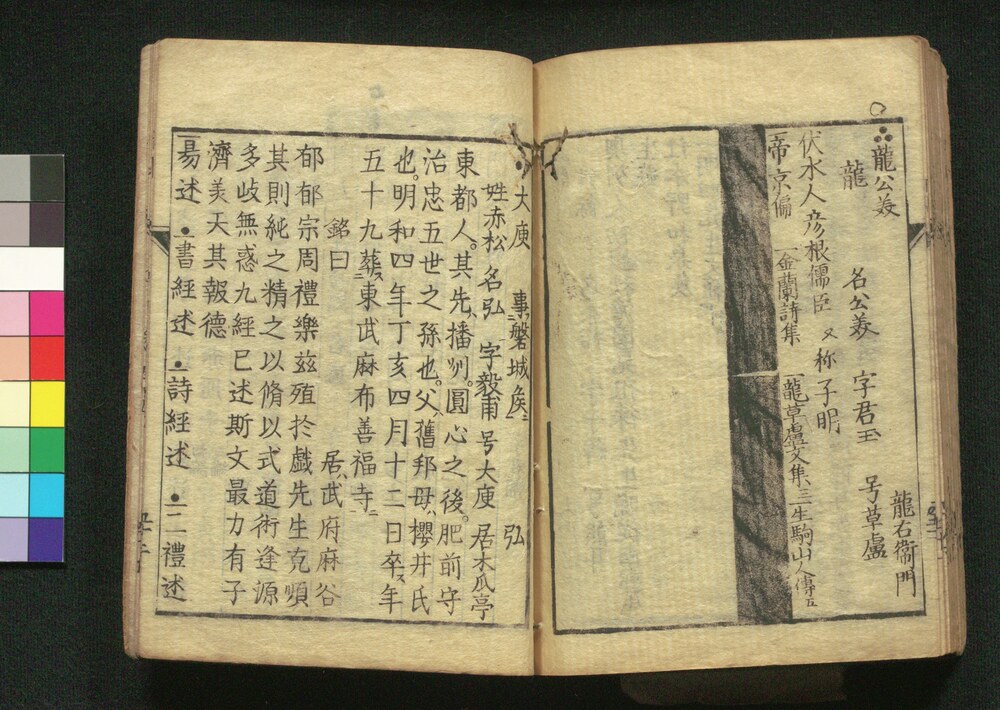 龍公美 龍右衛門
龍 名公美 字君玉 号草盧
伏水人彦根儒臣 又称子明
帝京偏 一金蘭詩集 一龍草盧文集 三生駒山人傳
大庾 事磐城侯 弘
姓赤松 名弘 字毅甫 号大庾 居木瓜亭
東都人其先播州圓心之後肥前守
治忠五世之孫也父舊邦母櫻井氏
也明和四年丁亥四月十二日卒年
五十九葬東武麻布善福寺
銘曰 居武府麻谷
郁郁宗周禮樂茲殖於戲先生克順
其則純之精之以脩以式道術逢源
多岐無惑九經已述斯文最力有子
濟美天其報德
易述 書經述 詩經述 二禮述